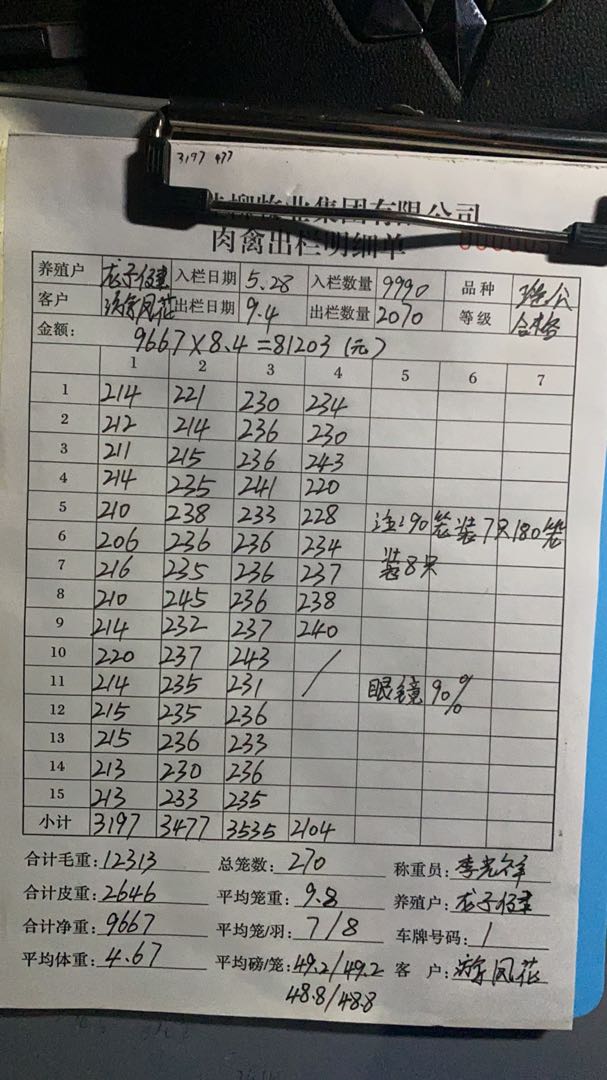 3197 477
牧业集团有限公司
肉禽出栏明细单
养殖户 入栏日期 5.28 入栏数量 9990 品种
客户 出栏日期 9.4 出栏数量 2070 等级 合格
金额: 9667×8.4=81203(元)
1 2 3 4 5 6 7
1 214 221 230 234
2 212 214 236 230
3 211 215 236 243
4 214 235 241 220
5 210 238 233 228 注:90笼装7只180笼
6 206 236 236 234
7 216 235 236 237 装8只
8 210 245 236 238
9 214 232 237 240
10 220 237 243 /
11 214 235 231 眼镜90%
12 215 235 236
13 215 236 233
14 213 230 236
15 213 233 235
小计 3197 3477 3535 2104
合计毛重: 12313 总笼数: 270 称重员: 李光祥
合计皮重: 2646 平均笼重: 9.8 养殖户:
合计净重: 9667 平均笼/羽: 7/8 车牌号码: /
平均体重: 4.67 平均磅/笼: 49.2/49.2 客 户:
48.8/48.8